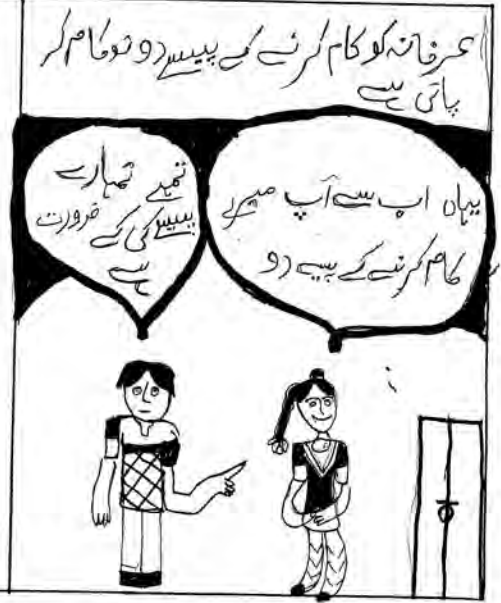 عرفانہ کو کام کرنے کے پیسے دو تو کام کر
پاتی ہے
یہاں اب سے آپ میرے
کام کرنے کے پیسے دو
تمہے تمہارے
پیسے کی کے ضرورت
ہے